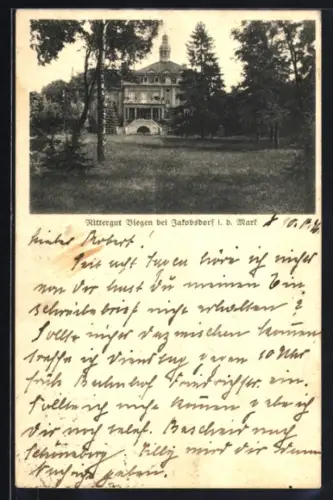 Rittergut Biegen bei Jakobsdorf i. d. Mark
Lieber Robert!
Seit acht Tagen höre ich nichts
von dir hast Du meinen Ein
schreibebrief nicht erhalten?
Sollte nichts dazwischen kommen
treffe ich Dienstag gegen 10 Uhr
früh Bahnhof Friedrichstr. ein.
Sollte ich nicht kommen gebe ich
Dir noch telef. Bescheid nach
Schöneberg. Willy wird dir
geben.